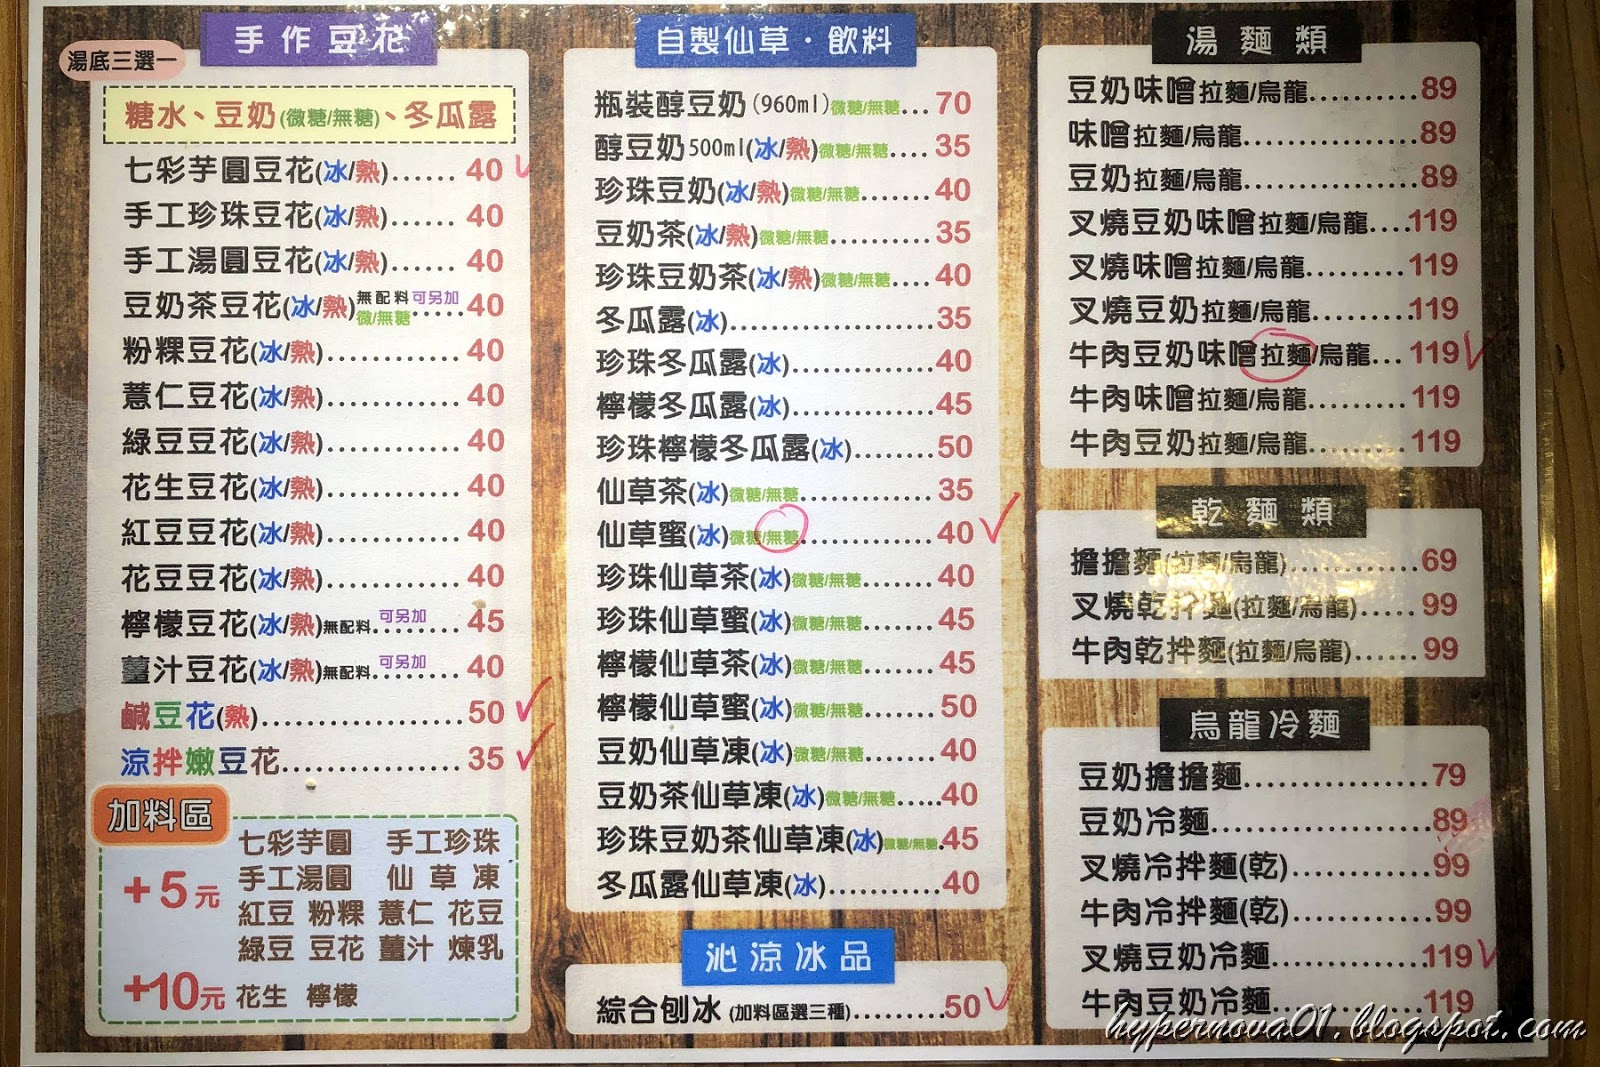 手作豆花
湯底三選一
糖水、豆奶(微糖/無糖)、冬瓜露
七彩芋圓豆花(冰/熱)...... 40
手工珍珠豆花(冰/熱)...... 40
手工湯圓豆花(冰/熱)...... 40
豆奶茶豆花(冰/熱)無配料可另加 微/無糖..... 40
粉粿豆花(冰/熱)............ 40
薏仁豆花(冰/熱)............ 40
綠豆豆花(冰/熱)............ 40
花生豆花(冰/熱)............ 40
紅豆豆花(冰/熱)............ 40
花豆豆花(冰/熱)............ 40
檸檬豆花(冰/熱)無配料.可另加....... 45
薑汁豆花(冰/熱)無配料.可另加....... 40
鹹豆花(熱).................. 50
涼拌嫩豆花................ 35
加料區
+5元
七彩芋圓 手工珍珠
手工湯圓 仙草凍
紅豆 粉粿 薏仁 花豆
綠豆 豆花 薑汁 煉乳
+10元 花生 檸檬
自製仙草·飲料
瓶裝醇豆奶(960ml)微糖/無糖...70
醇豆奶500ml(冰/熱)微糖/無糖....35
珍珠豆奶(冰/熱)微糖/無糖.......40
豆奶茶(冰/熱)微糖/無糖..........35
珍珠豆奶茶(冰/熱)微糖/無糖....40
冬瓜露(冰)....................35
珍珠冬瓜露(冰)..............40
檸檬冬瓜露(冰)..............45
珍珠檸檬冬瓜露(冰)........50
仙草茶(冰)微糖/無糖.............35
仙草蜜(冰)微糖/無糖.............40
珍珠仙草茶(冰)微糖/無糖.......40
珍珠仙草蜜(冰)微糖/無糖.......45
檸檬仙草茶(冰)微糖/無糖.......45
檸檬仙草蜜(冰)微糖/無糖.......50
豆奶仙草凍(冰)微糖/無糖.......40
豆奶茶仙草凍(冰)微糖/無糖.....40
珍珠豆奶茶仙草凍(冰)微糖/無糖.45
冬瓜露仙草凍(冰)..........40
沁涼冰品
綜合刨冰(加料區選三種).........50
湯麵類
豆奶味噌拉麵/烏龍..........89
味噌拉麵/烏龍................89
豆奶拉麵/烏龍................89
叉燒豆奶味噌拉麵/烏龍....119
叉燒味噌拉麵/烏龍.........119
叉燒豆奶拉麵/烏龍.........119
牛肉豆奶味噌拉麵/烏龍...119
牛肉味噌拉麵/烏龍.........119
牛肉豆奶拉麵/烏龍.........119
乾麵類
擔擔麵(拉麵/烏龍)............69
叉燒乾拌麵(拉麵/烏龍).....99
牛肉乾拌麵(拉麵/烏龍)......99
烏龍冷麵
豆奶擔擔麵.................79
豆奶冷麵....................89
叉燒冷拌麵(乾)............99
牛肉冷拌麵(乾)............99
叉燒豆奶冷麵.............119
牛肉豆奶冷麵.............119
hypernova01.blogspot.com